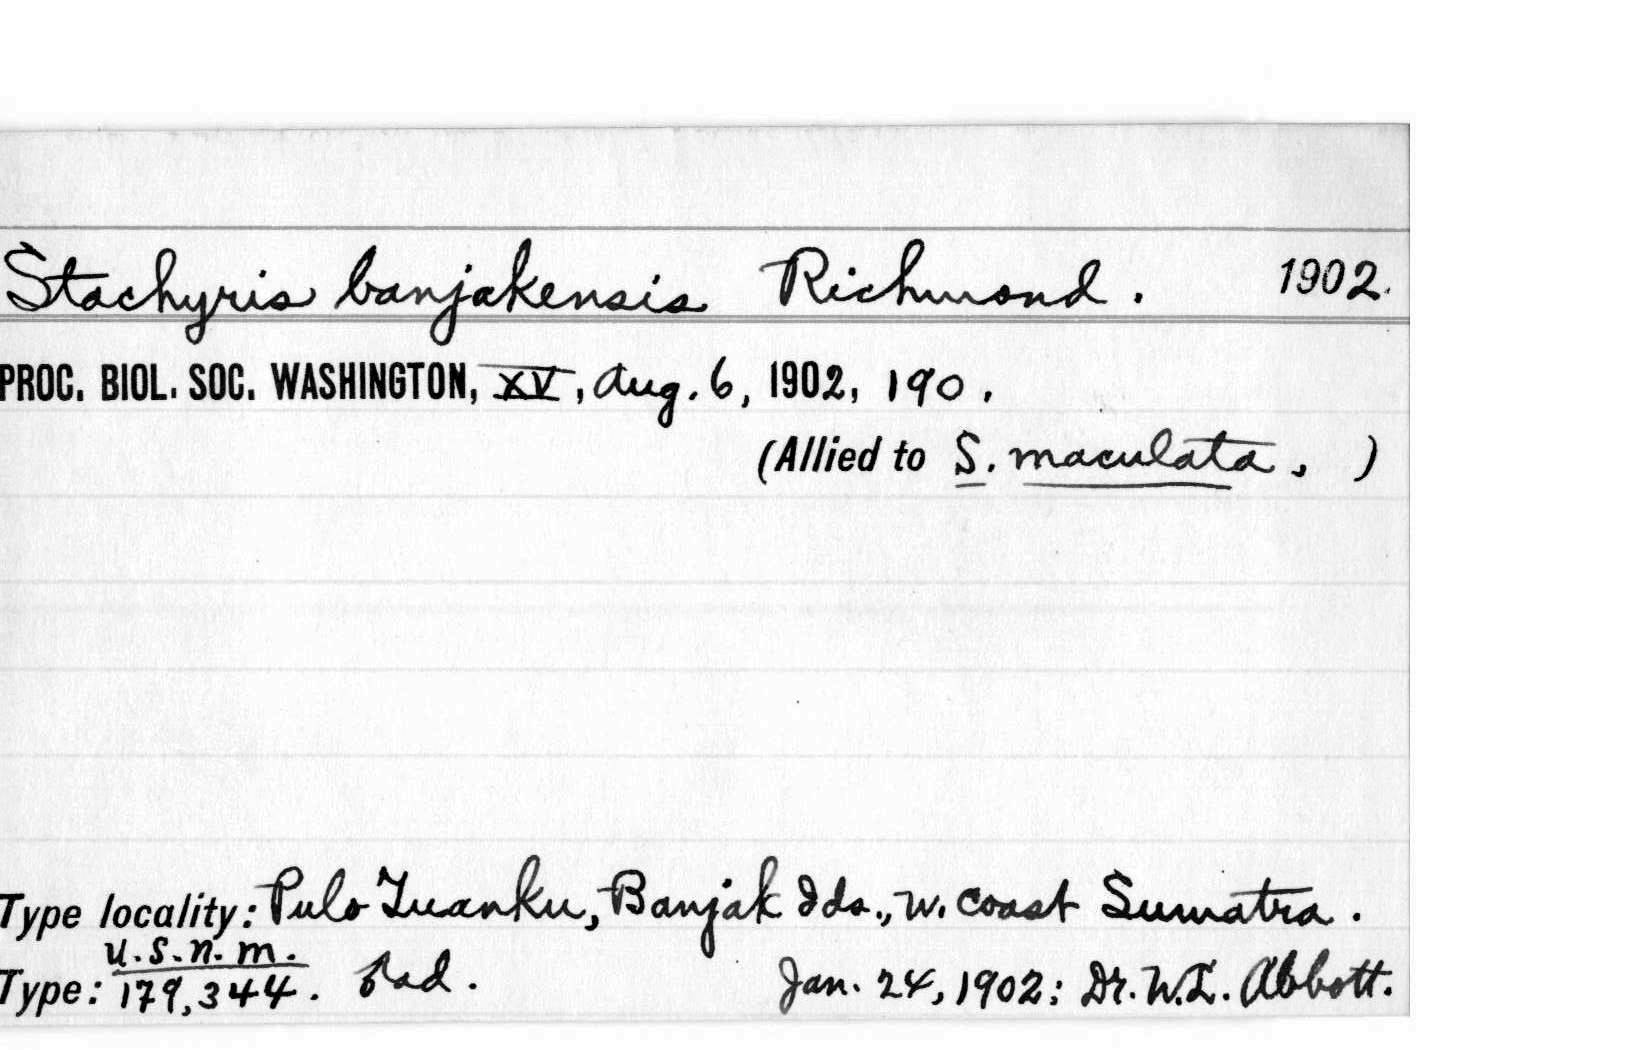 Stachyris banjakensis Richmond. 1902.
PROC. BIOL. SOC. WASHINGTON, XV, Aug. 6, 1902, 190.
(Allied to S. maculata, )
Type locality: Pulo Tuanku, Banjak Ids., W. coast Sumatra.
U.S.N.M.
Type: 179,344. ad. Jan. 24, 1902: Dr. W.L. Abbott.